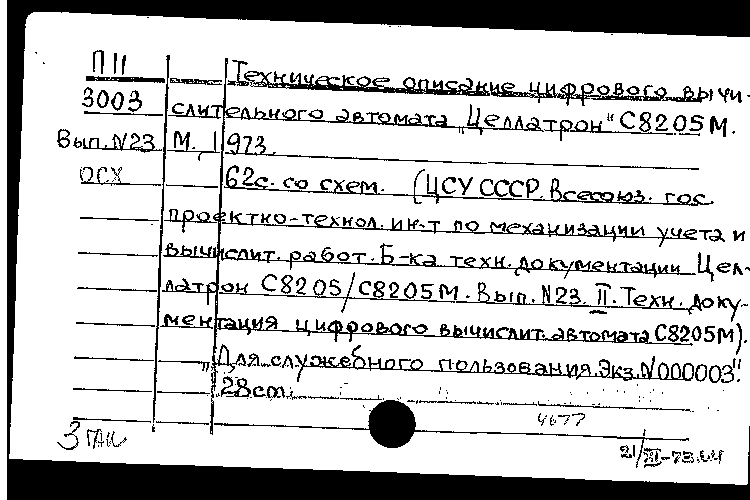 П11 Техническое описание цифрового вычи-
3003 слительного автомата „Целлатрон" С8205М.
Вып. N23 М., 1973.
ОСХ 62с. со схем. (ЦСУ СССР. Всесоюз. гос.
проектно-технол. ин-т по механизации учета и
вычислит. работ. Б-ка техн. документации Цел-
латрон С8205/С8205М. Вып. N23. II. Техн. доку-
ментация цифрового вычислит. автомата С8205М).
„Для служебного пользования. Экз. N000003".
28см.
4677
3
21/III-73.